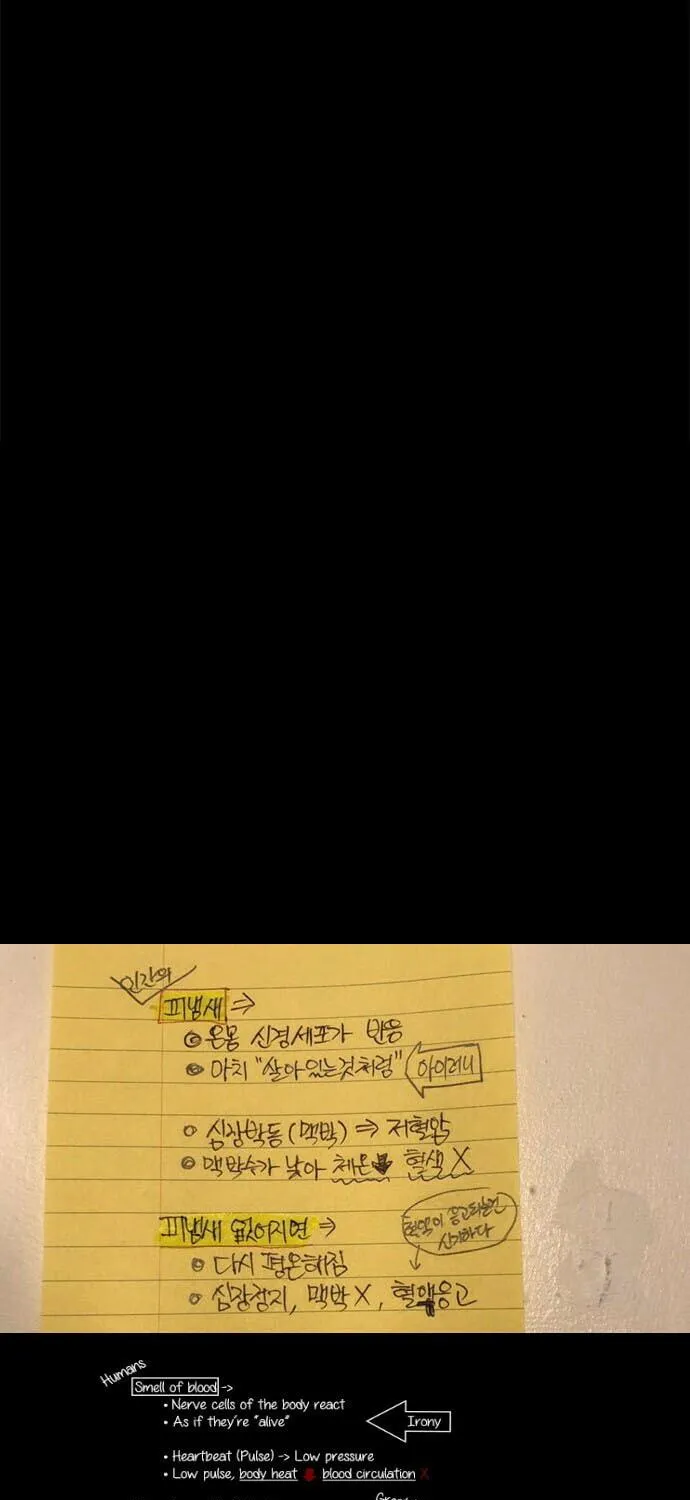 인간의
피냄새 ⇒
온몸 신경세포가 반응
마치 "살아있는것처럼" 아이러니
심장박동 (맥박) ⇒ 저혈압
맥박수가 낮아 체온⬇ 혈색 X
피냄새 없어지면 ⇒
혈액이 응고되는건
신기하다
다시 평온해짐
심장정지, 맥박 X, 혈액응고
Humans
Smell of blood ->
• Nerve cells of the body react
• As if they're "alive" Irony
• Heartbeat (Pulse) -> Low pressure
• Low pulse, body heat ⬇ blood circulation X